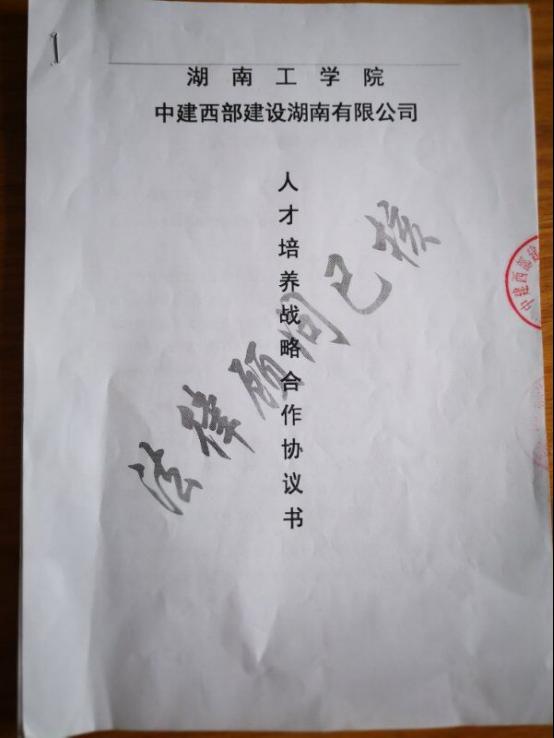 湖南工学院
中建西部建设湖南有限公司
人才培养战略合作协议书
法律顾问已核
中建西部建